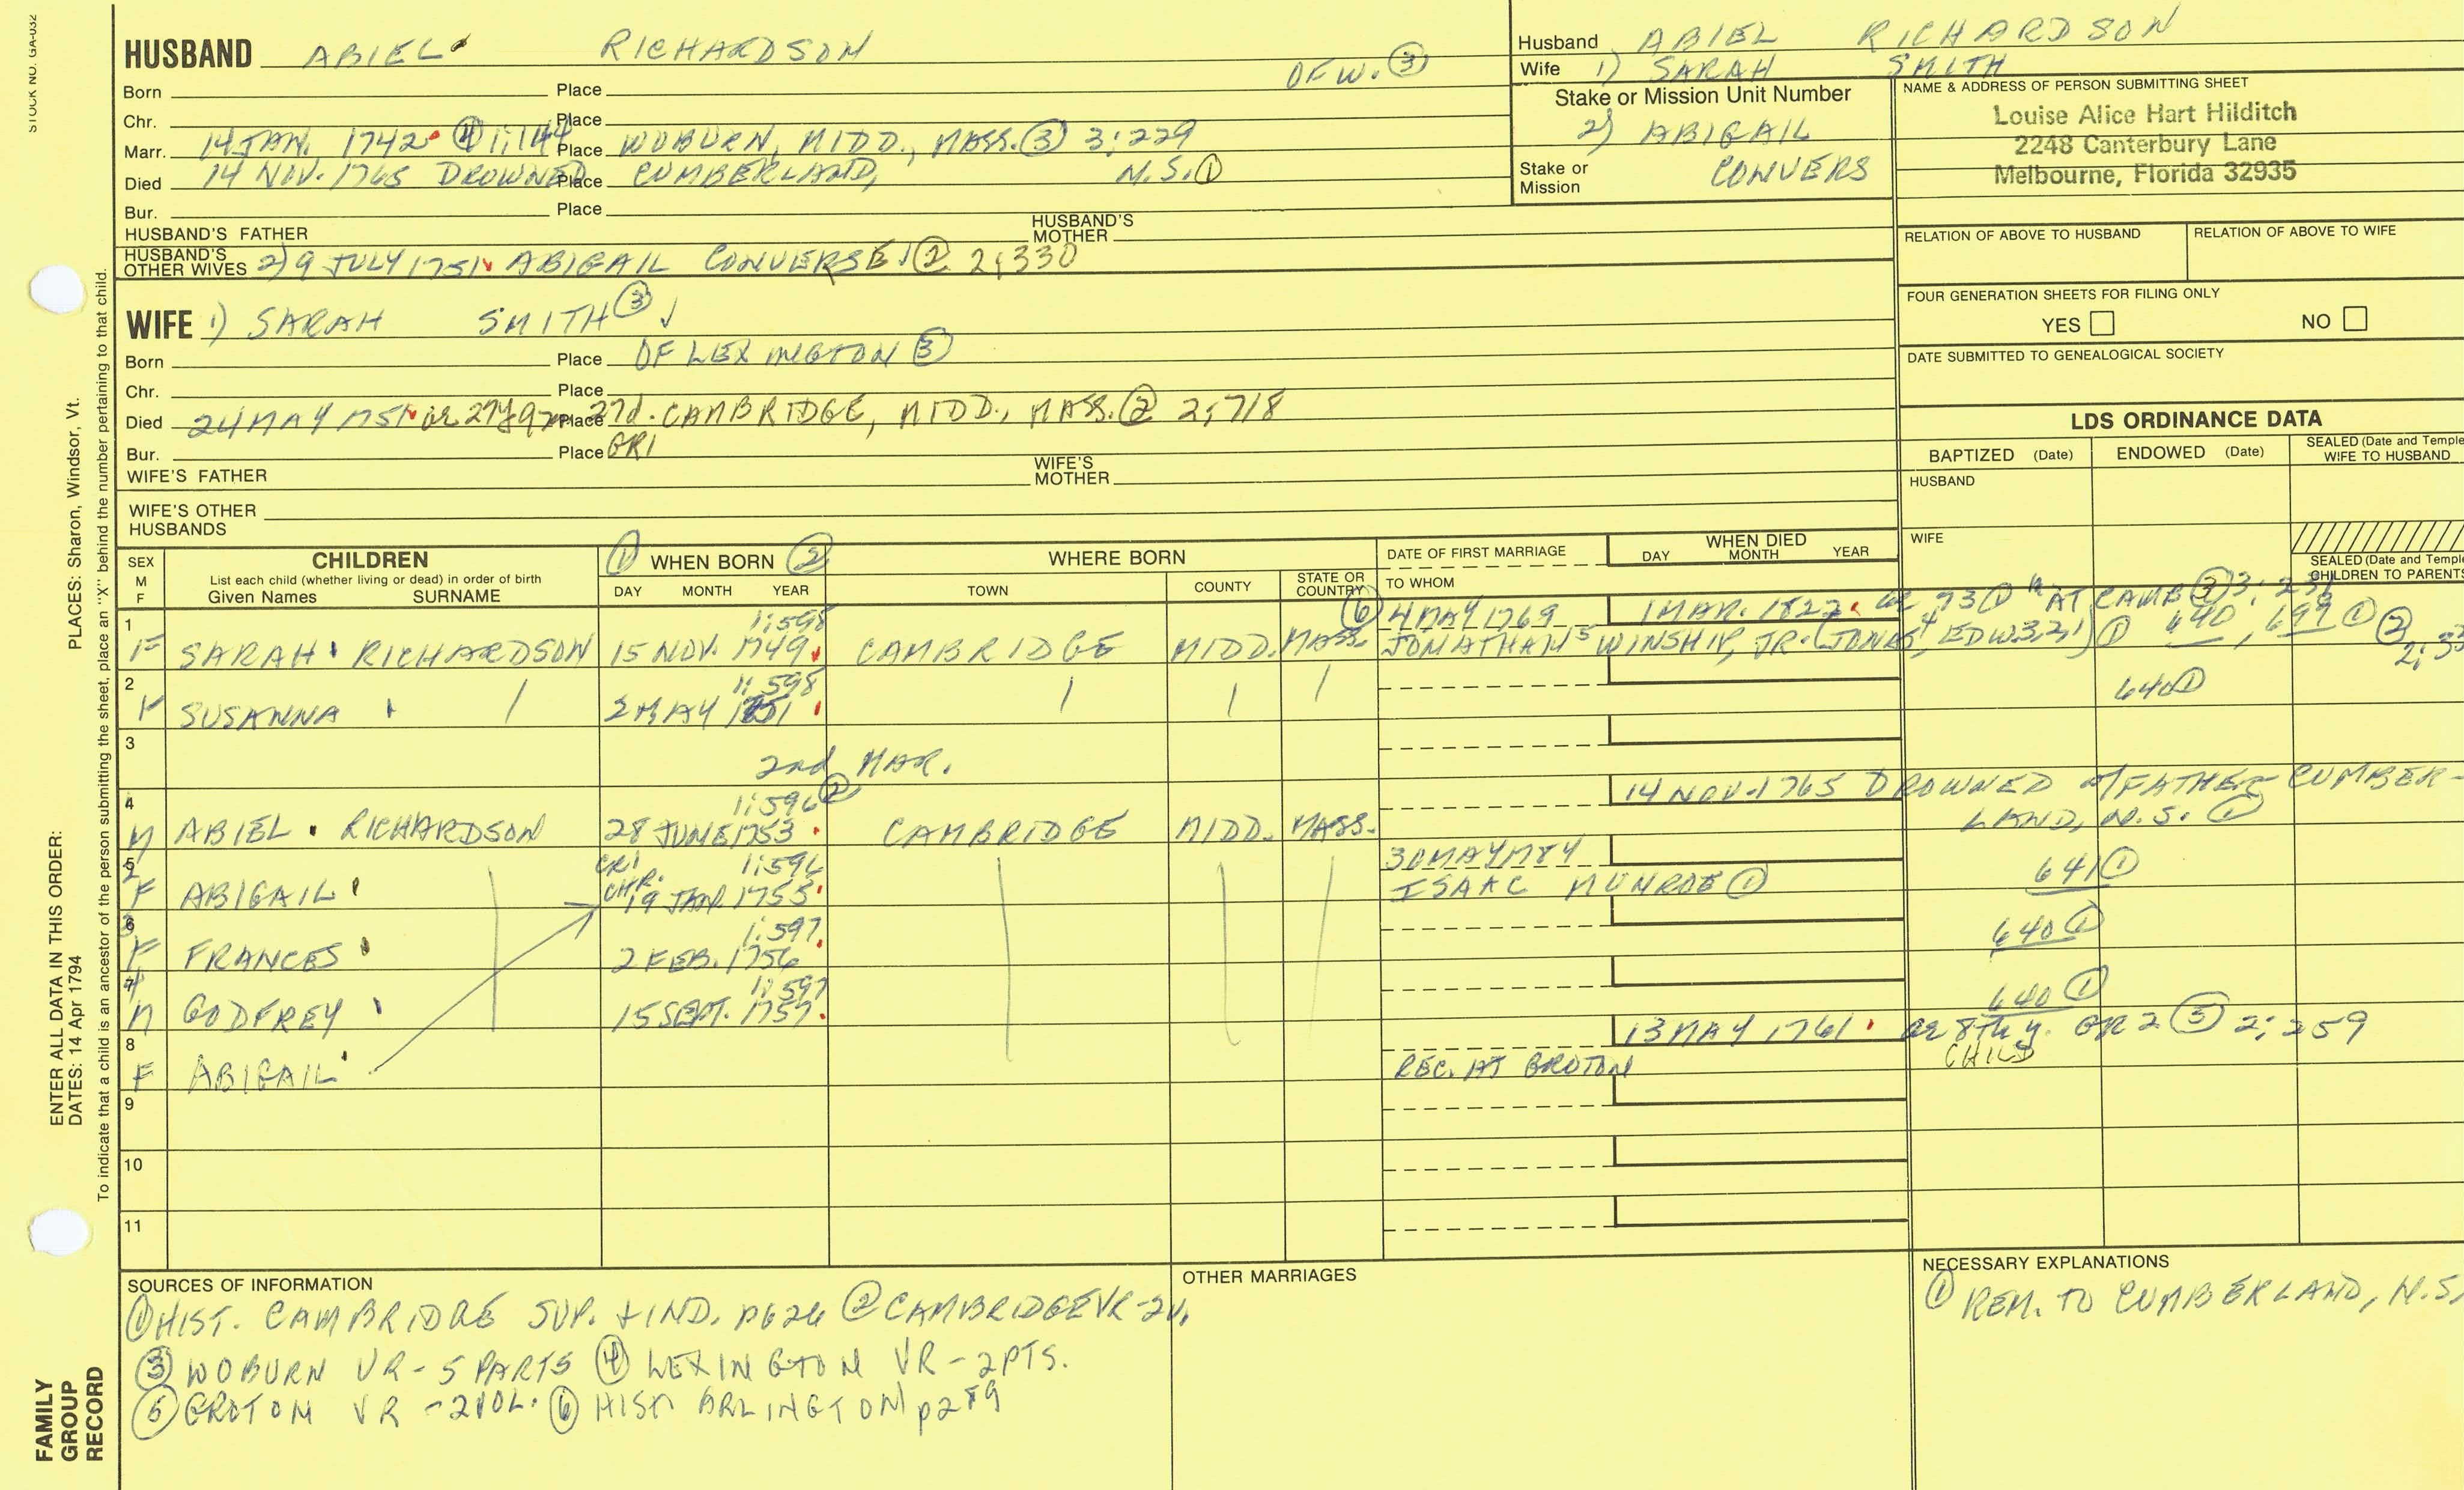 STOCK NO. GA-032
HUSBAND ABIEL RICHARDSON OF W. ③
Born Place
Chr. Place
Marr. 14 JAN. 1742 ④ 1:144 Place WOBURN, MIDD., MASS. ③ 3:229
Died 14 NOV. 1765 DROWNED Place CUMBERLAND, N.S. ①
Bur. Place
HUSBAND'S FATHER HUSBAND'S MOTHER
HUSBAND'S OTHER WIVES 2) 9 JULY 1751 ABIGAIL CONVERSE ② 2:330
Husband ABIEL RICHARDSON
Wife 1) SARAH SMITH
Stake or Mission Unit Number
2) ABIGAIL
Stake or Mission CONVERS
NAME & ADDRESS OF PERSON SUBMITTING SHEET
Louise Alice Hart Hilditch
2248 Canterbury Lane
Melbourne, Florida 32935
RELATION OF ABOVE TO HUSBAND RELATION OF ABOVE TO WIFE
FOUR GENERATION SHEETS FOR FILING ONLY
YES NO
DATE SUBMITTED TO GENEALOGICAL SOCIETY
WIFE 1) SARAH SMITH ③
Born Place OF LEXINGTON ③
Chr. Place
Died 24 MAY 1751 ae 27y 9m Place 27d. CAMBRIDGE, MIDD., MASS. ② 2:718
Bur. Place GR1
WIFE'S FATHER WIFE'S MOTHER
WIFE'S OTHER HUSBANDS
LDS ORDINANCE DATA
BAPTIZED (Date) ENDOWED (Date) SEALED (Date and Temple WIFE TO HUSBAND
HUSBAND
WIFE
SEALED (Date and Temple CHILDREN TO PARENTS
SEX M F
CHILDREN
List each child (whether living or dead) in order of birth
Given Names SURNAME
① WHEN BORN ②
DAY MONTH YEAR
WHERE BORN
TOWN COUNTY STATE OR COUNTRY
DATE OF FIRST MARRIAGE
TO WHOM
WHEN DIED
DAY MONTH YEAR
1 1:598 ⑥ 4 MAY 1769 1 MAR. 1827 ae 73 ① AT CAMB ③ 3:231
F SARAH RICHARDSON 15 NOV. 1749 CAMBRIDGE MIDD. MASS. JONATHAN 5 WINSHIP, JR. (JONA 4, EDW. 3, 2, 1) ① 640, 699 ① ②
2 1:598
F SUSANNA 2 MAY 1751 640 ①
3 2nd MAR.
4 1:596 ② 14 NOV. 1765 DROWNED w/FATHER CUMBER-
M ABIEL RICHARDSON 28 JUNE 1753 CAMBRIDGE MIDD. MASS. LAND, N.S. ①
5 CR1 1:596 30 MAY 1784
F ABIGAIL CHR. 19 JAN. 1755 ISAAC MUNROE ① 641 ①
6 1:597
F FRANCES 2 FEB. 1756 640 ①
7 1:597
M GODFREY 15 SEPT. 1757 640 ①
8 13 MAY 1761 ae 8th y. GR2 ⑤ 2:259
F ABIGAIL REC. AT GROTON CHILD
9
10
11
SOURCES OF INFORMATION
① HIST. CAMBRIDGE SUP. + IND. p626 ② CAMBRIDGE VR - 2V.
③ WOBURN VR - 5 PARTS ④ LEXINGTON VR - 2PTS.
⑤ GROTON VR - 2VOL. ⑥ HIST ARLINGTON p289
OTHER MARRIAGES
NECESSARY EXPLANATIONS
① REM. TO CUMBERLAND, N.S.
PLACES: Sharon, Windsor, Vt.
ENTER ALL DATA IN THIS ORDER:
DATES: 14 Apr 1794
To indicate that a child is an ancestor of the person submitting the sheet, place an "X" behind the number pertaining to that child.
FAMILY GROUP RECORD